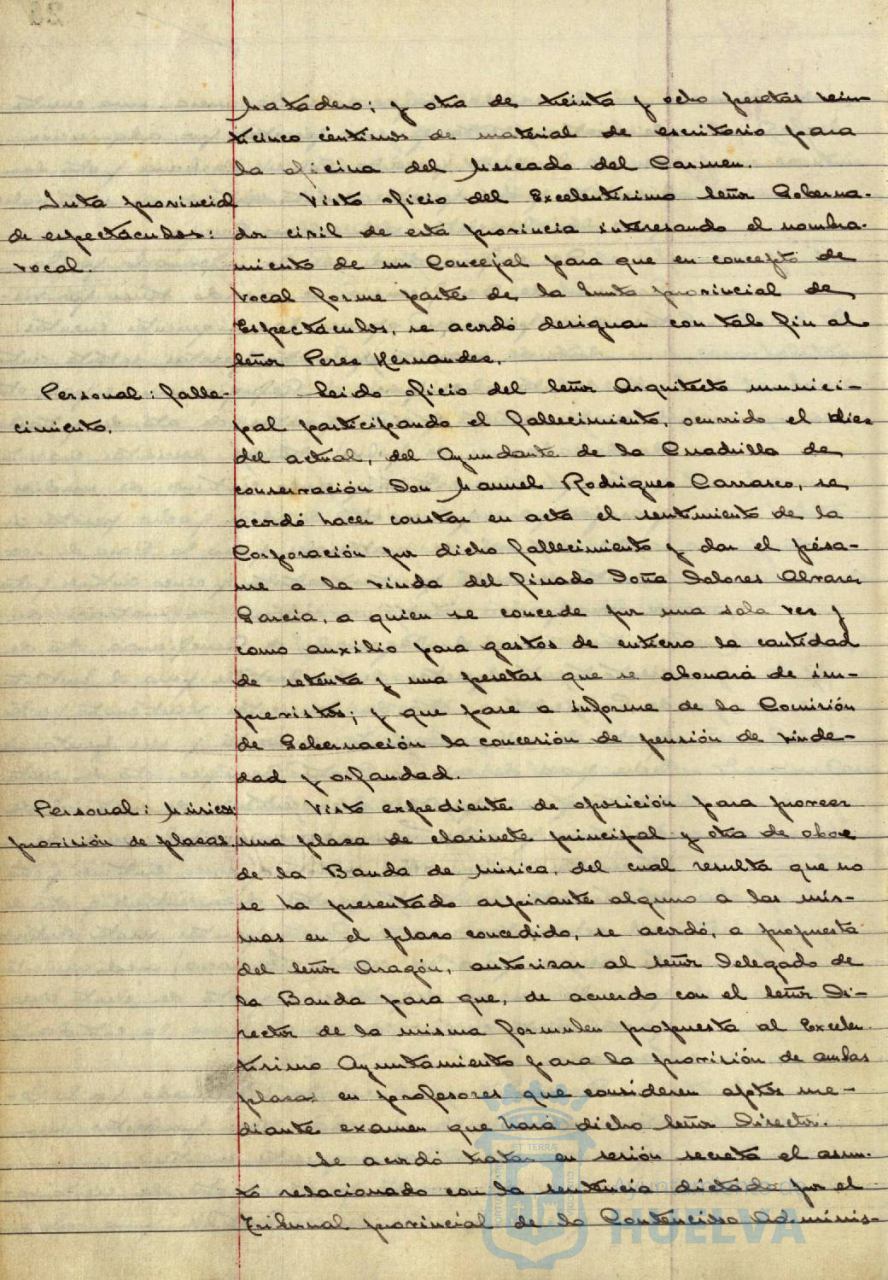 Matadero; y otra de treinta y ocho pesetas vein-
ticinco céntimos de material de escritorio para
la oficina del Mercado del Carmen.
Junta provincial
de espectáculos:
vocal.
Visto oficio del Excelentísimo Señor Goberna-
dor civil de esta provincia interesando el nombra-
miento de un Concejal para que en concepto de
vocal forme parte de la Junta provincial de
Espectáculos, se acordó designar con tal fin al
Señor Perez Hernandez.
Personal: falle-
cimiento.
Leido oficio del Señor Arquitecto munici-
pal participando el fallecimiento, ocurrido el dies
del actual, del Ayudante de la Cuadrilla de
conservación Don Manuel Rodriguez Carrasco, se
acordó hacer constar en acta el sentimiento de la
Corporación por dicho fallecimiento y dar el pésa-
me a la viuda del finado Doña Dolores Alvarez
Garcia, a quien se concede por una sola vez y
como auxilio para gastos de entierro la cantidad
de setenta y una pesetas que se abonará de im-
previstos; y que pase a informe de la Comisión
de Gobernación la concesión de pensión de viude-
dad y orfandad.
Personal: Músicos:
provisión de plazas.
Visto expediente de oposición para proveer
una plaza de clarinete principal y otra de oboe
de la Banda de música, del cual resulta que no
se ha presentado aspirante alguno a las mis-
mas en el plazo concedido, se acordó, a propuesta
del Señor Aragón, autorizar al Señor Delegado de
la Banda para que, de acuerdo con el Señor Di-
rector de la misma formulen propuesta al Excelen
tísimo Ayuntamiento para la provisión de ambas
plazas en profesores que consideren aptos me-
diante examen que hará dicho Señor Director.
Se acordó tratar en sesión secreta el asun-
to relacionado con la sentencia dictada por el
Tribunal provincial de lo Contencioso Adminis-
HUELVA